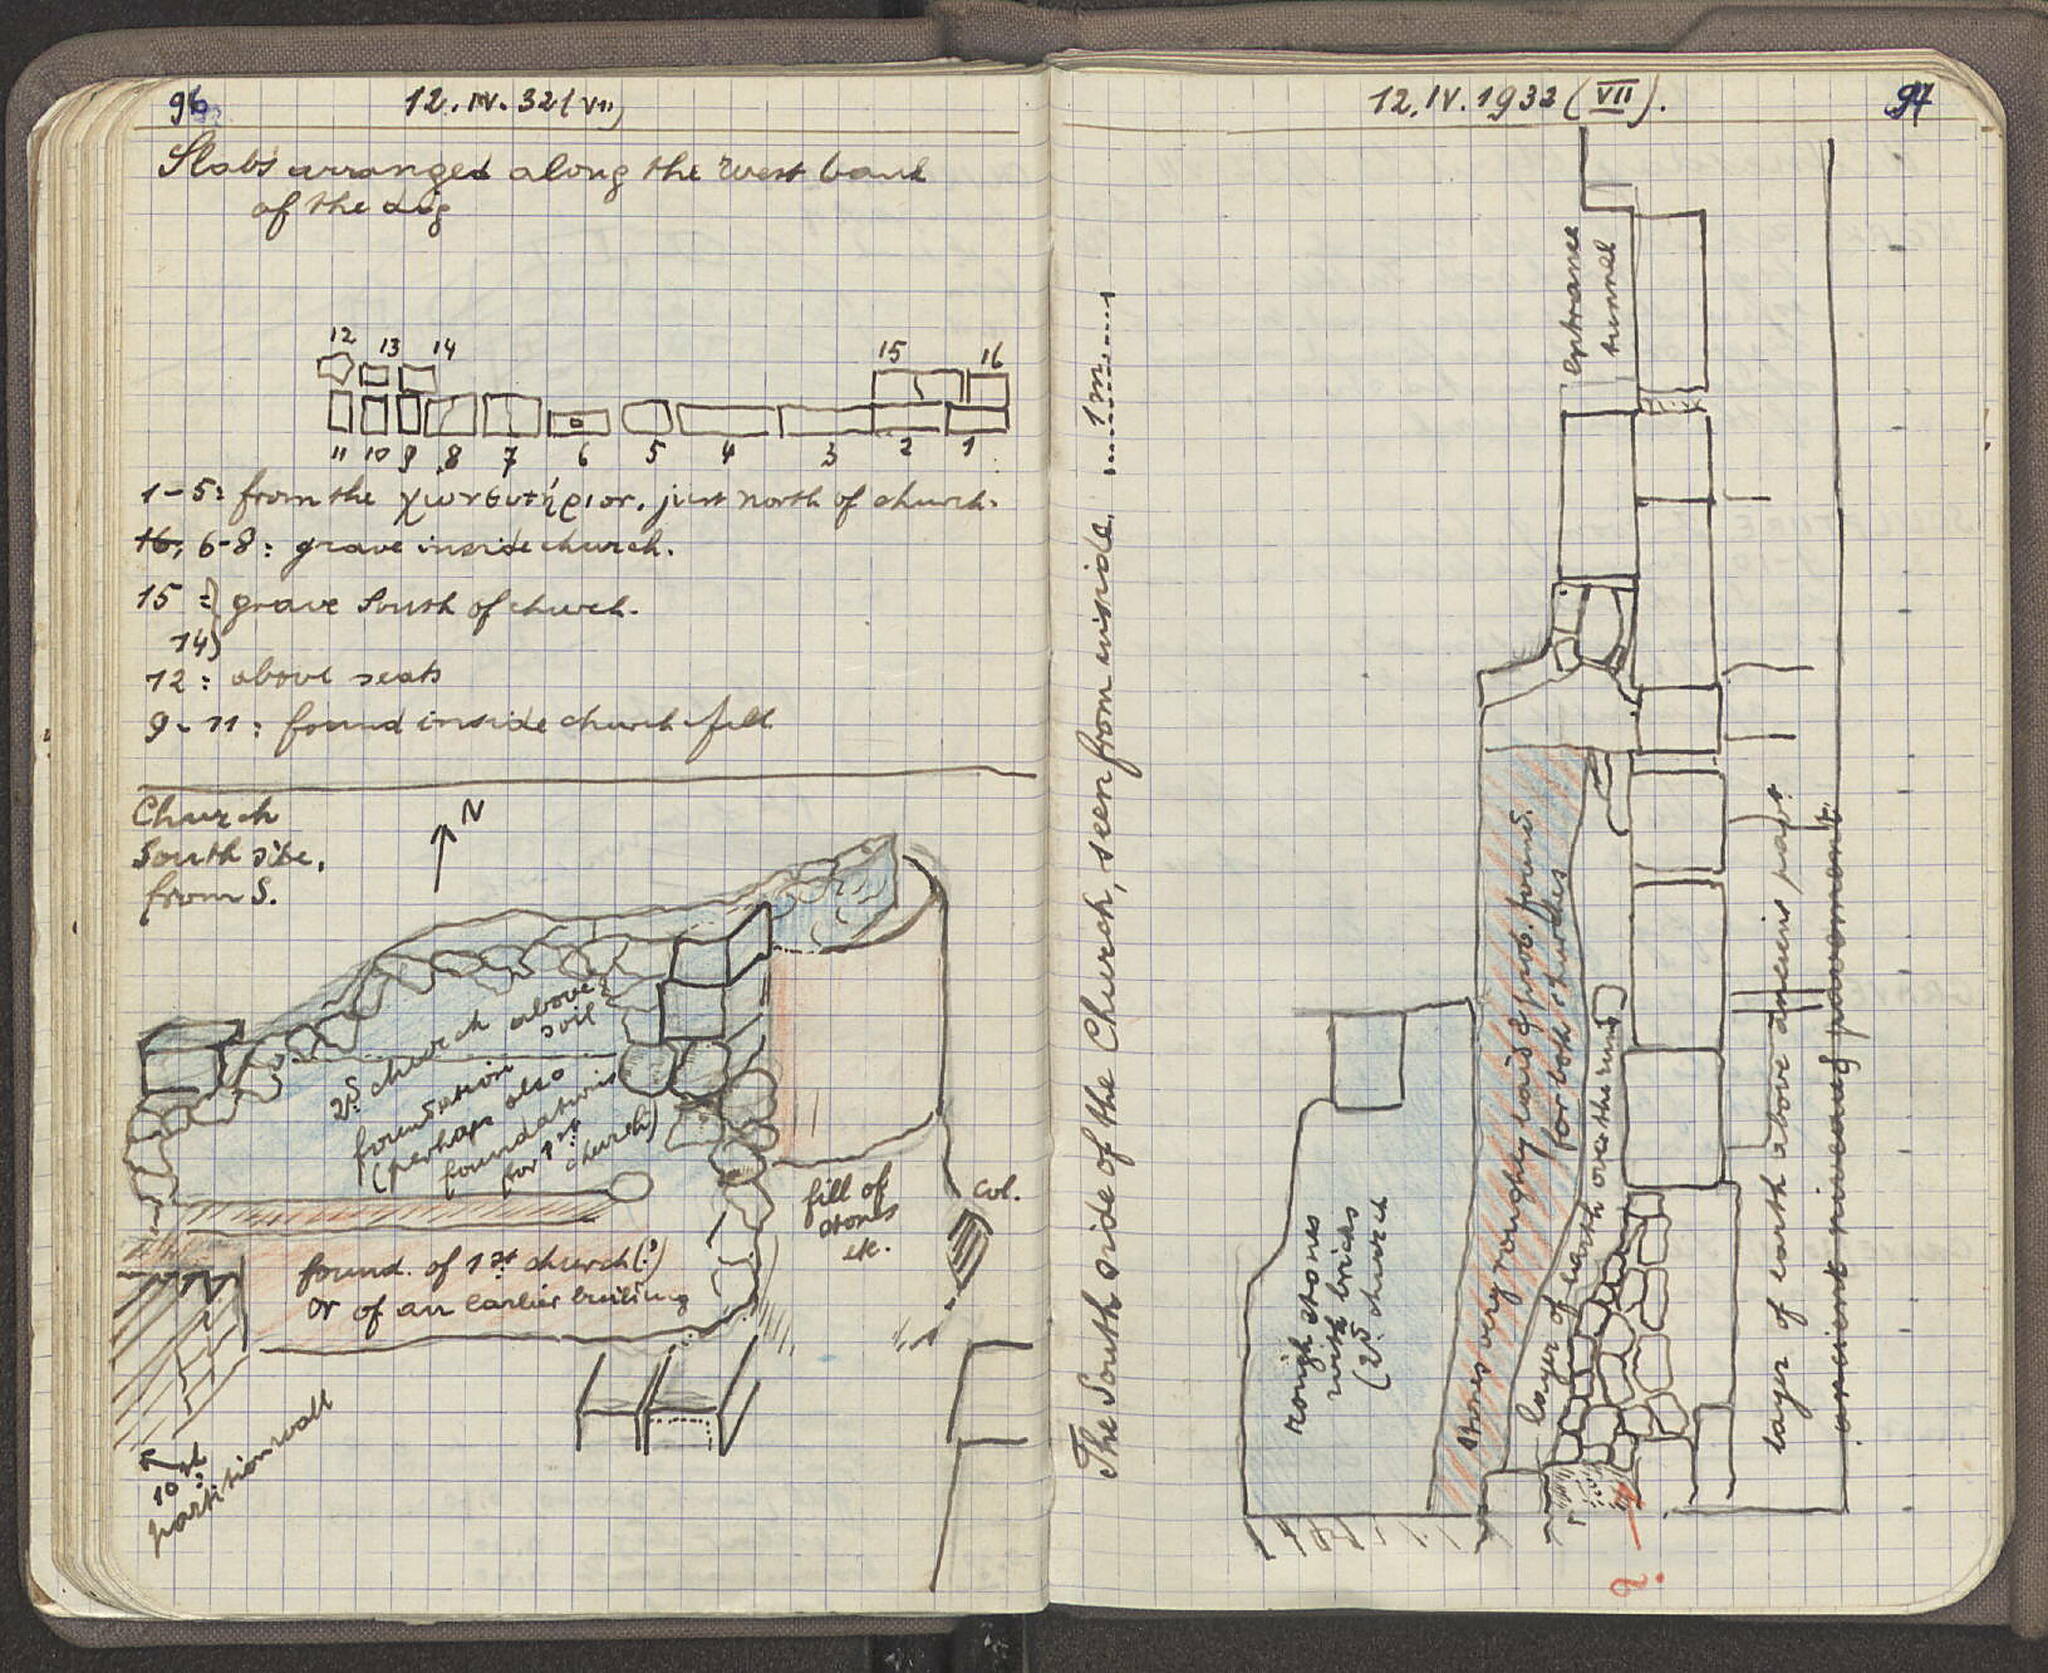 96
12.IV.32(VII)
Slabs arranged along the west bank
of the dig
12 13 14 15 16
11 10 9 8 7 6 5 4 3 2 1
1-5: from the χωνευτήριον, just north of church.
16, 6-8: grave inside church.
15 :} grave South of church.
14}
12: above seats
9-11: found inside church fill
Church
South side,
from S.
N
2d. church above
soil
foundation
(perhaps also
foundations
for 1st
church)
found. of 1st church(?)
or of an earlier builing
fill of
stones
etc.
Col.
10th
partition wall
12.IV.1932 (VII).
97
The South side of the Church, seen from inside. 1m
entrance
tunnel
rough stones
with bricks
(2d. church
stones very roughly laid & prob. found.
for both churches
layer of earth over the ruins
layer of earth above ancient pav.t
ancient niveau, pavement.
?